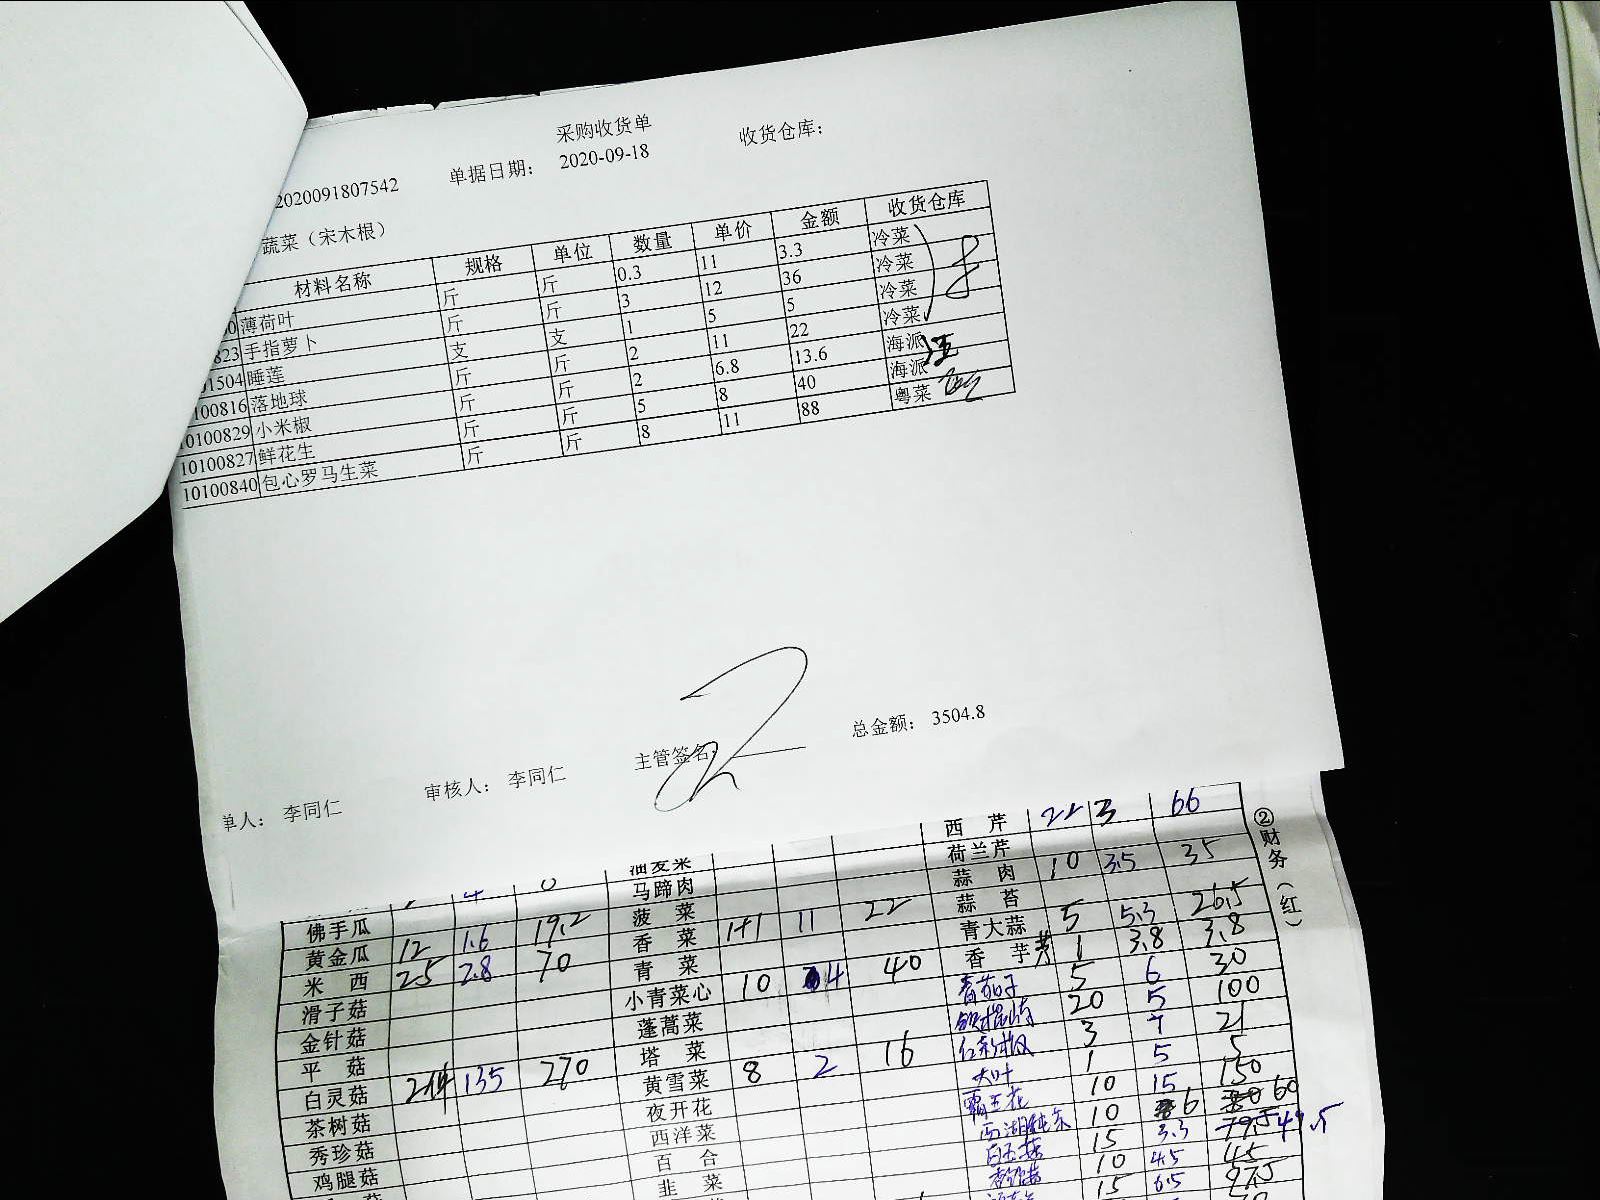 采购收货单
2020091807542 单据日期： 2020-09-18 收货仓库：
蔬菜（宋木根）
材料名称 规格 单位 数量 单价 金额 收货仓库
薄荷叶 斤 斤 0.3 11 3.3 冷菜
823 手指萝卜 斤 斤 3 12 36 冷菜
1504 睡莲 支 支 1 5 5 冷菜
100816 落地球 斤 斤 2 11 22 冷菜
10100829 小米椒 斤 斤 2 6.8 13.6 海派
10100827 鲜花生 斤 斤 5 8 40 海派
10100840 包心罗马生菜 斤 斤 8 11 88 粤菜
单人： 李同仁 审核人： 李同仁 主管签名： 总金额： 3504.8
②财务（红）
西芹 22 3 66
荷兰芹
马蹄肉 蒜肉 10 3.5 35
佛手瓜 菠菜 蒜苔
黄金瓜 12 1.6 19.2 香菜 1+1 11 22 青大蒜 5 5.3 26.5
米西 25 2.8 70 青菜 香芋 1 3.8 3.8
滑子菇 小青菜心 10 4 40 5 6 30
金针菇 蓬蒿菜 20 5 100
平菇 塔菜 3 7 21
白灵菇 2件 135 270 黄雪菜 8 2 16 大叶 1 5 5
茶树菇 夜开花 霸王花 10 15 150
秀珍菇 西洋菜 10 6 60
鸡腿菇 百合 15 3.3 49.5
韭菜 10 4.5 45
15 6.5 97.5